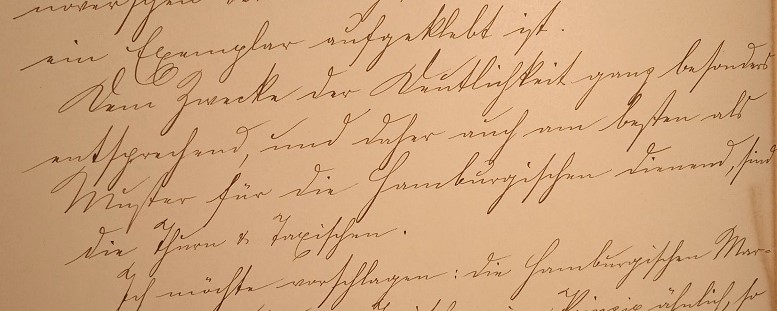 ein Exemplar aufgeklebt ist.
Dem Zwecke der Deutlichkeit ganz besonders
entsprechend, und daher auch am besten als
Muster für die Hamburgischen dienend, sind
die Thurn & Taxischen.
Ich möchte vorschlagen: die Hamburgischen Mar-
Prinzip ähnlich, so